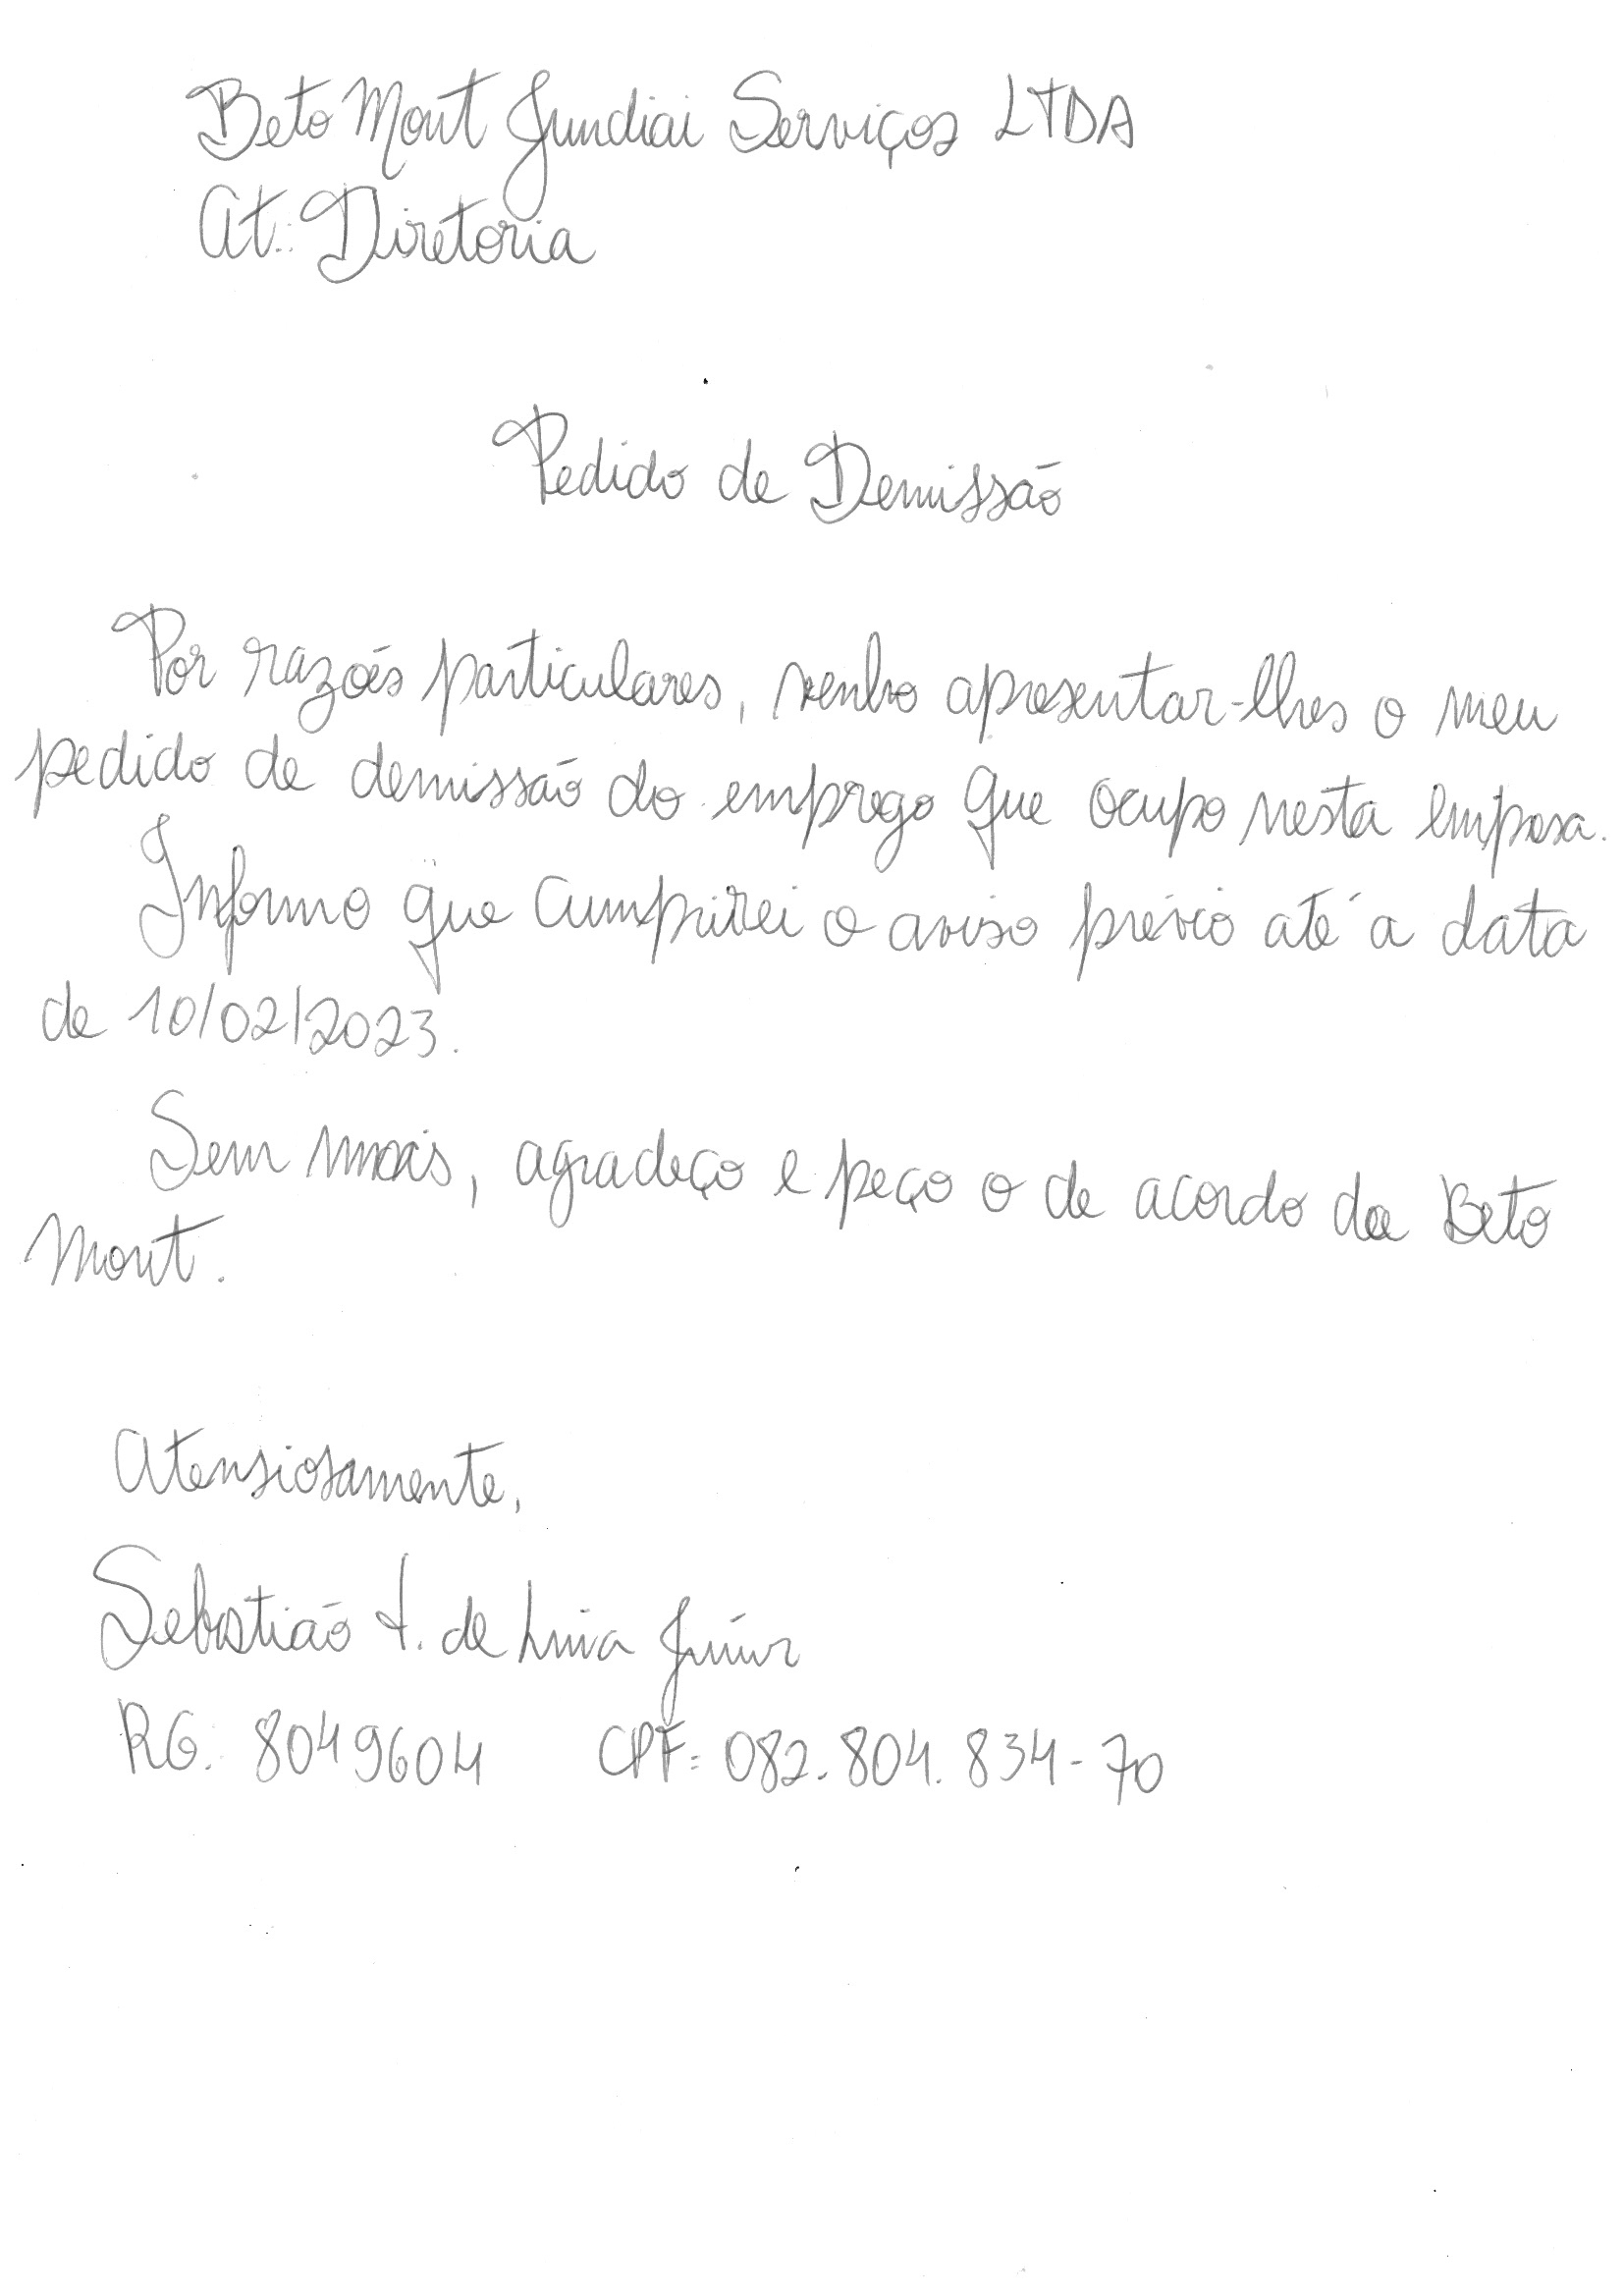 Beto Mont Jundiai Serviços LTDA
At.: Diretoria
Pedido de Demissão
Por razões particulares, venho apresentar-lhes o meu
pedido de demissão do emprego que ocupo nesta empresa.
Informo que cumprirei o aviso prévio até a data
de 10/02/2023.
Sem mais, agradeço e peço o de acordo da Beto
Mont.
Atensiosamente,
Sebastião F. de Lima Júnior
RG: 8049604 CPF: 082.804.834-70